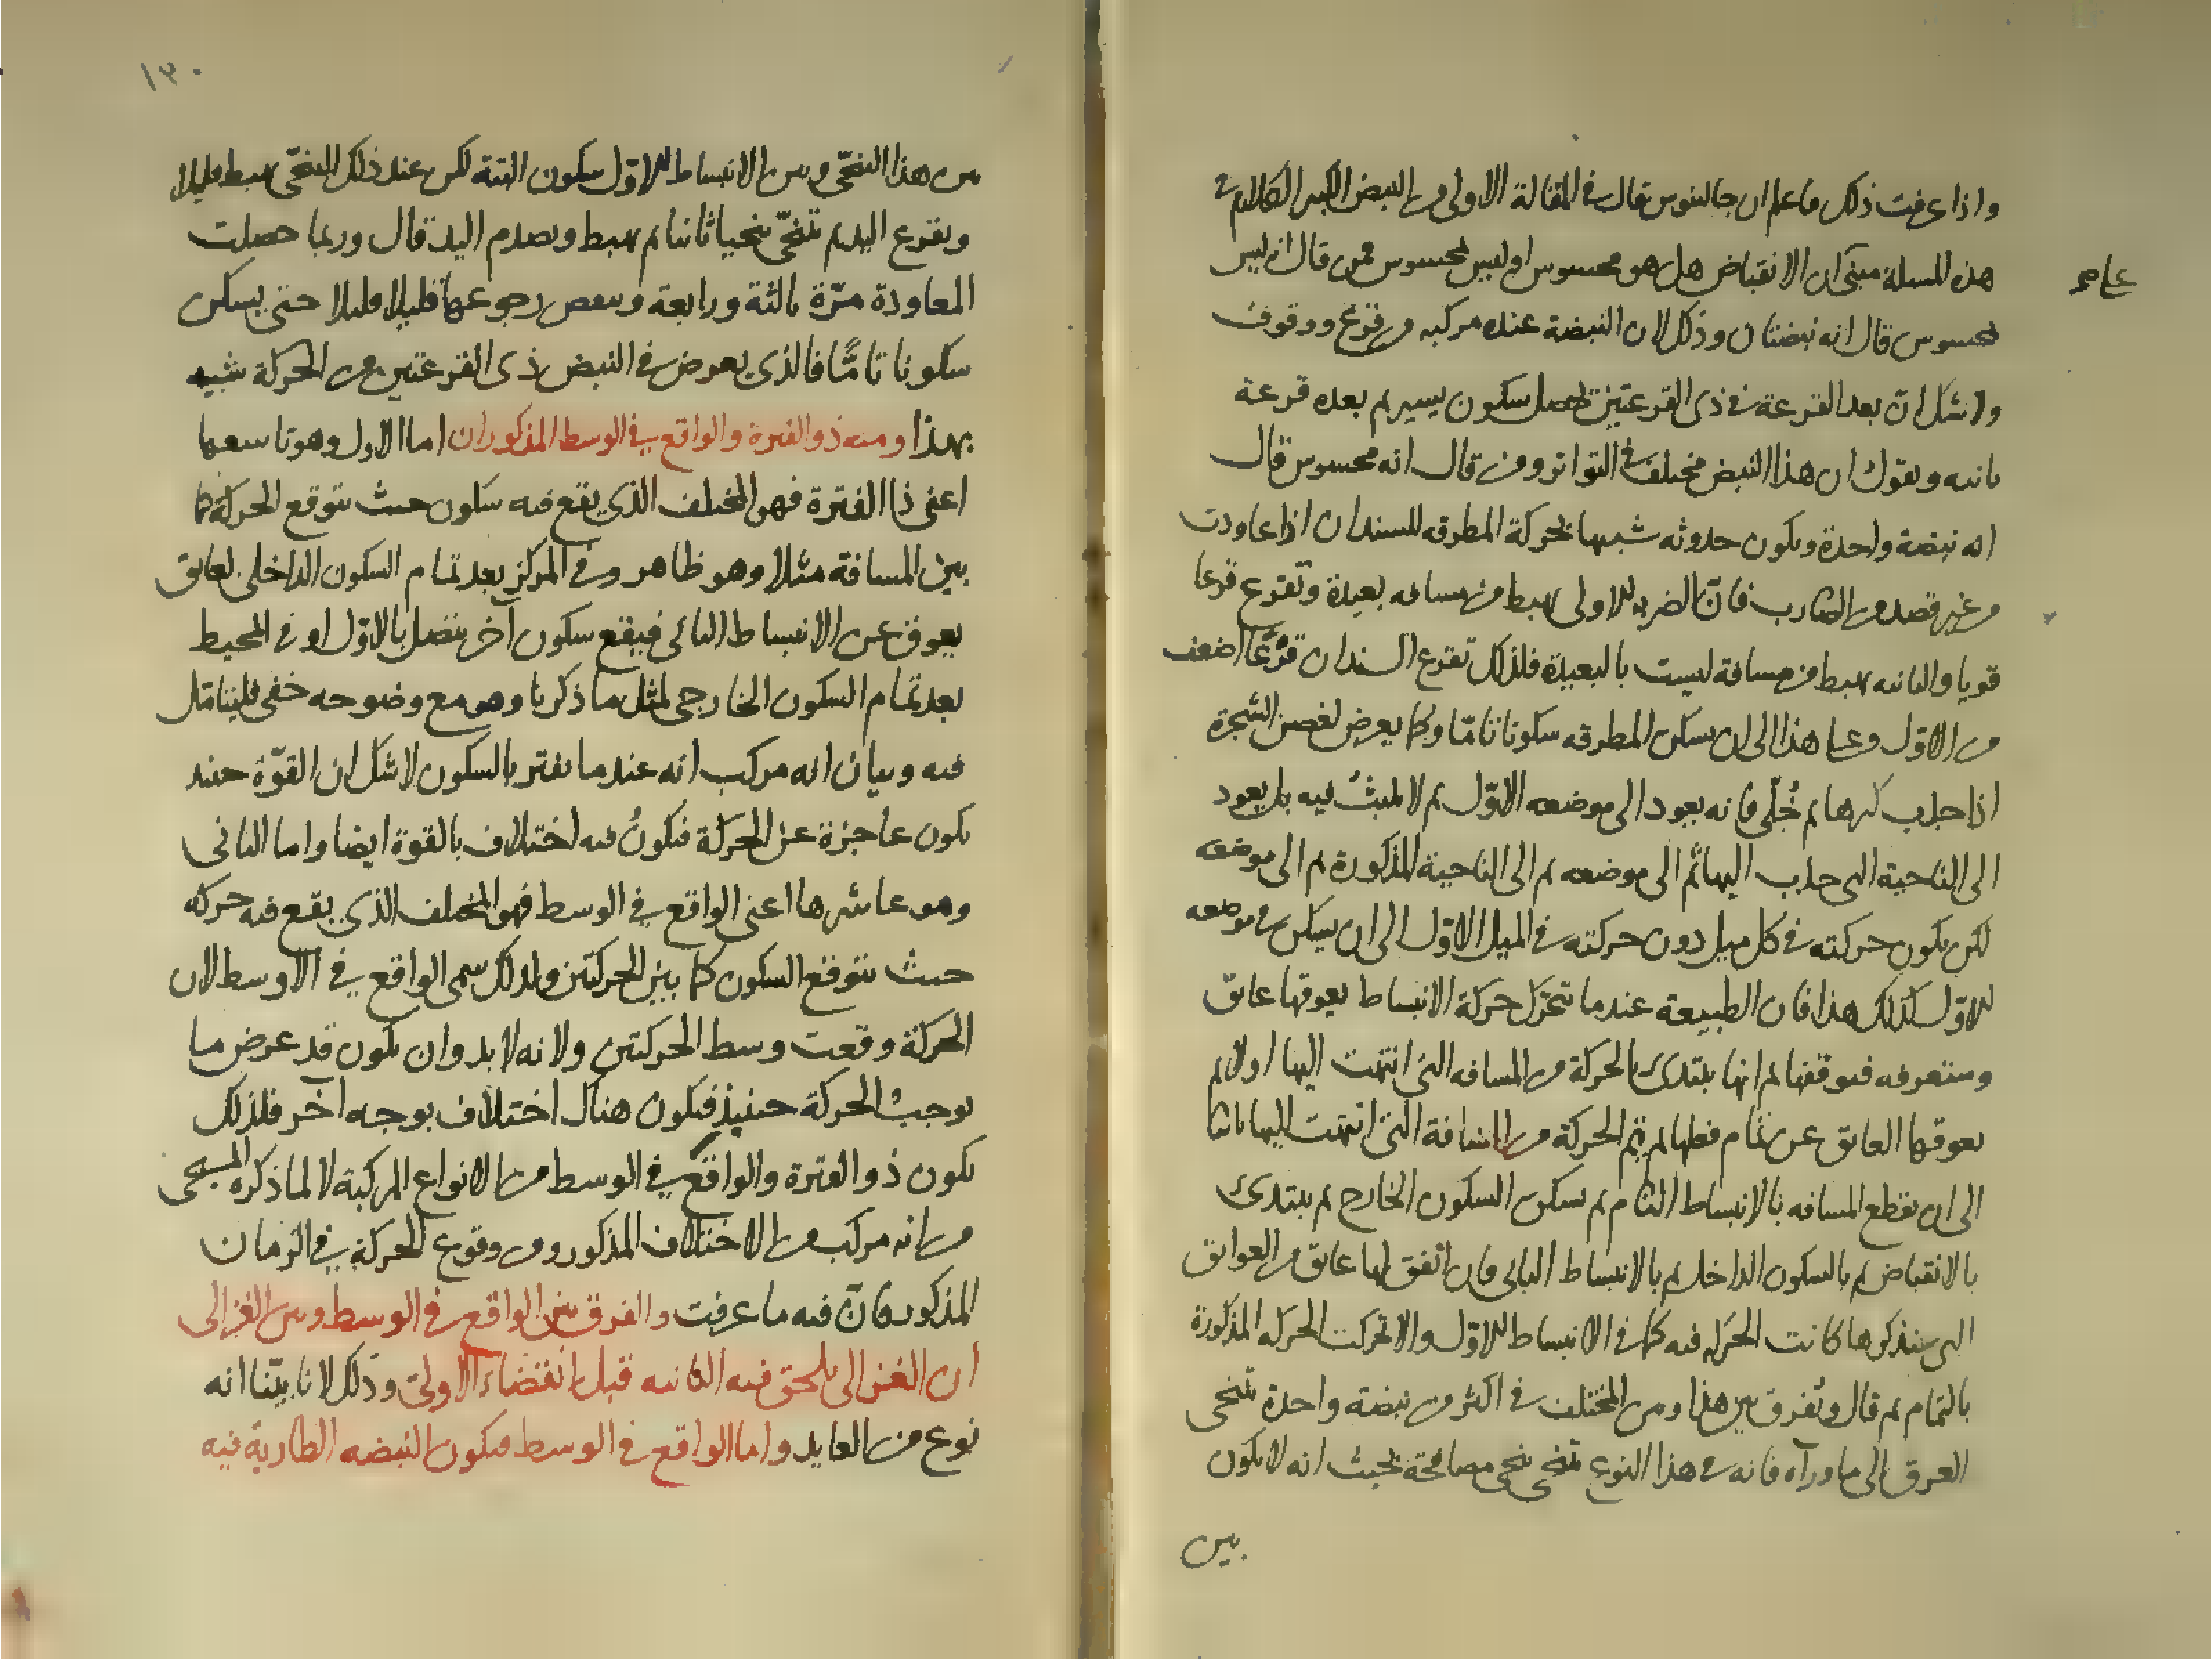 واذا عرفت ذلك فاعلم ان جالينوس قال في المقالة الاولى من النبض الكبير الكلام في
هذه المسلة مبنى ان الانقباض هل هو محسوس او ليس بمحسوس فمن قال انه ليس
على ما
بمحسوس قال انه نبضتان وذلك لان النبضة عنده مركبه من قرع ووقوف
ولا شك ان بعد القرعة في ذى القرعتين يحصل سكون يسير ثم بعده قرعة
ثانيه ويقول ان هذا النبض مختلف في التواتر ومن قال انه محسوس قال
انه نبضة واحدة ويكون حدوثه شبيها بحركة المطرقه للسندان اذا عاودت
من غير قصد من الضارب فان الضربه الاولى تهبط من مسافه بعيدة وتقرع قرعا
قويا والثانيه تهبط من مسافة ليست بالبعيدة فلذلك تقرع السندان قرعا اضعف
من الاول وعلى هذا الى ان تسكن المطرقه سكونا تامّا وكما يعرض لغصن الشجرة
اذا جذب كرها ثم خُلّى فانه يعود الى موضعه الاول ثم لا يلبث فيه بل يعود
الى الناحية التى جذب اليها ثم الى موضعه ثم الى الناحية المذكورة ثم الى موضعه
لكن تكون حركته في كل ميل دون حركته في الميل الاول الى ان يسكن في موضعه
الاول كذلك هذا فان الطبيعة عندما تتحرك حركة الانبساط يعوقها عائق
وستعرفه فيوقفها ثم انها تبتدئ بالحركة من المسافه التى انتهت اليها اولا ثم
يعوقها العائق عن تمام فعلها ثم تتم الحركة من المسافة التى انتهت اليها ثانيا
الى ان تقطع المسافه بالانبساط التام ثم تسكن السكون الخارج ثم تبتدئ
بالانقباض ثم بالسكون الداخل ثم بالانبساط الثانى فان اتفق لها عائق من العوائق
التى سنذكرها كانت الحركه فيه كما في الانبساط الاول والا تحركت الحركه المذكورة
بالتمام ثم قال ويُفرق بين هذا وبين المختلف في اكثر من نبضة واحدة تنحى
العرق الى ما ورآه فانه في هذا النوع تنحى تنحى مصافحة بحيث انه لا يكون
بين
١٣٠
بين هذا التنحّى وبين الانبساط الاول سكون البتة لكن عند ذلك التنحّى يهبط قليلا
ويقرع اليد ثم تنحّى تنحيا ثانيا ثم يهبط ويصدم اليد قال وربما حصلت
المعاودة مرّة ثالثة ورابعة وينقص رجوعها قليلا قليلا حتى يسكن
سكونا تامًّا فالذى يعرض في النبض ذى القرعتين من الحركة شبيه
بهذا ومنه ذو الفترة والواقع في الوسط المذكوران اما الاول وهو تاسعها
اعنى ذا الفترة فهو المختلف الذى يقع فيه سكون حيث يتوقع الحركة كما
بين المسافة مثلا وهو ظاهر وفى المركز بعد تمام السكون الداخلى لعائق
يعوق عن الانبساط الثانى فيقع سكون آخر يتصل بالاول او في المحيط
بعد تمام السكون الخارجى لمثل ما ذكرنا وهو مع وضوحه خفى فليتامل
فيه وبيان انه مركب انه عندما يفتر بالسكون لا شك ان القوّة حينئذ
تكون عاجزة عن الحركة فيكونُ فيه اختلاف بالقوة ايضا واما الثانى
وهو عاشرها اعنى الواقع في الوسط فهو المختلف الذى يقع فيه حركه
حيث يتوقع السكون كما بين الحركتين ولذلك سمى الواقع في الاوسط لان
الحركة وقعت وسط الحركتين ولانه لا بد وان يكون قد عرض ما
يوجب الحركة حينئذ فيكون هناك اختلاف بوجه آخر فلذلك
يكون ذو الفترة والواقع في الوسط من الانواع المركبة لا لما ذكره المسيحى
من انه مركب من الاختلاف المذكور ومن وقوع الحركة في الزمان
المذكور فان فيه ما عرفت والفرق بين الواقع في الوسط وبين الغزالى
ان الغزالى يلحق فيه الثانيه قبل انقضاء الاولى وذلك لانا بيّنا انه
نوع من العايد واما الواقع في الوسط فيكون النبضه الطارية فيه